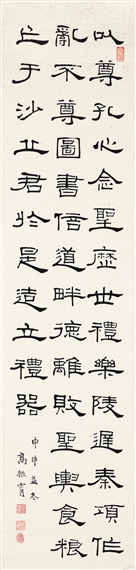 以尊孔心念聖歷世禮樂陵遲秦項作
亂不尊圖書倍道畔德離敗聖輿食糧
亡于沙丘君於是造立禮器
甲申孟冬
高振霄